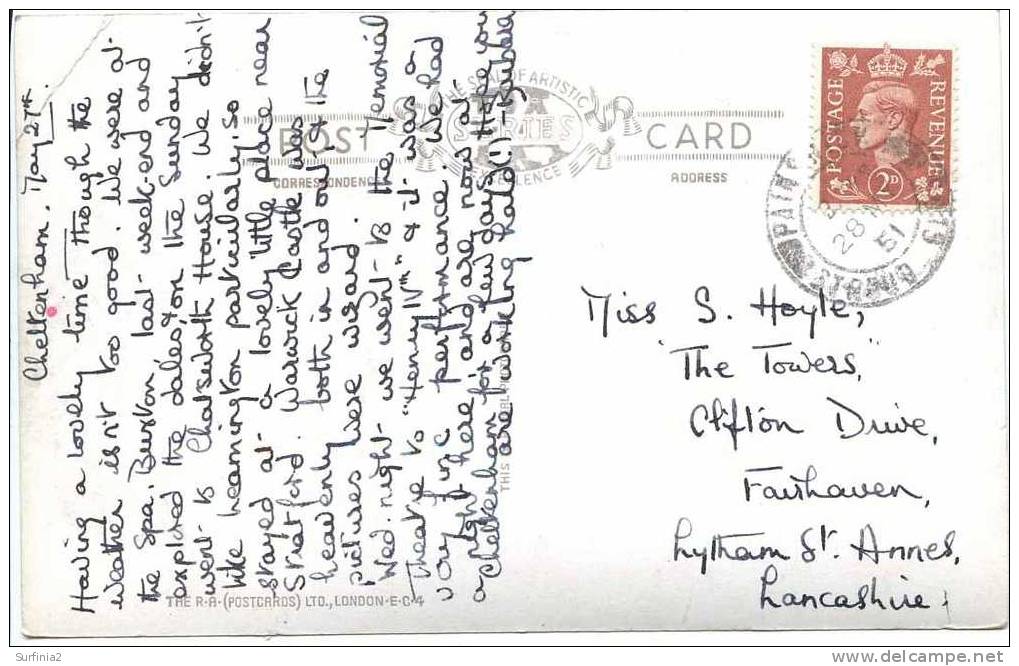 Cheltenham. May 27th.
Having a lovely time though the
weather isn't too good. We were at
the Spa. Buxton last week-end and
explored the dales on the Sunday
went to Chatsworth House. We didn't
like Leamington particularly; so
stayed at a lovely little place near
Stratford. Warwick Castle was
heavenly both in and out, & the
pictures were wizard.
Wed. night we went to the Memorial
Theatre to "Henry IVth" & it was a
very fine performance. We had
a night here and are now at
Cheltenham for a few days. Hope you
are working hard(!) -
POST CARD
THE SEAL OF ARTISTIC
EXCELLENCE
SERIES
CORRESPONDENCE
ADDRESS
THE R.A. (POSTCARDS) LTD., LONDON-E-C-4
POSTAGE REVENUE
2D
28 51
STROUD
Miss S. Hoyle,
"The Towers,"
Clifton Drive,
Fairhaven,
Lytham St. Annes,
Lancashire.
Surfinia2
www.delcampe.net